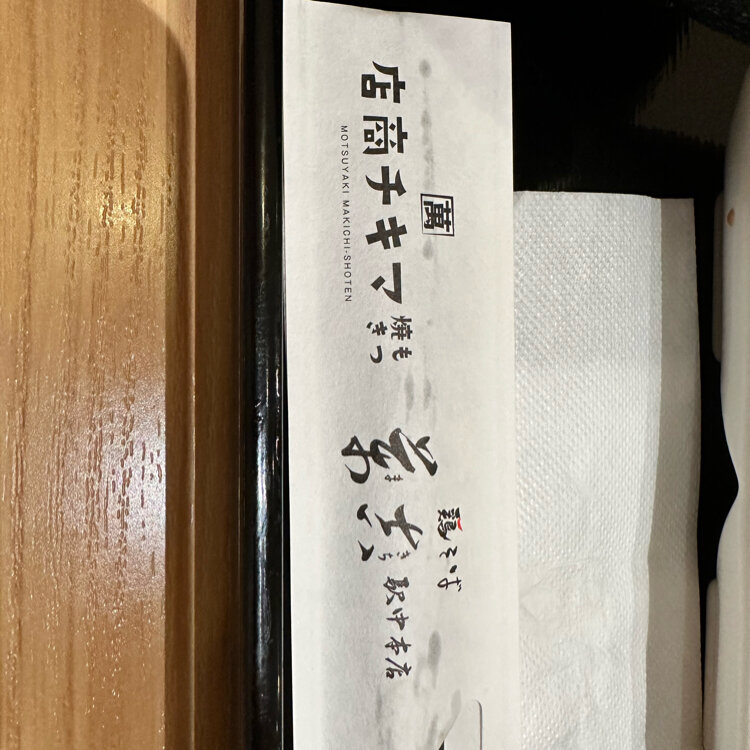 萬
もつ
焼き
マキチ商店
MOTSUYAKI MAKICHI-SHOTEN
鶏そば
まきち
駅中本店